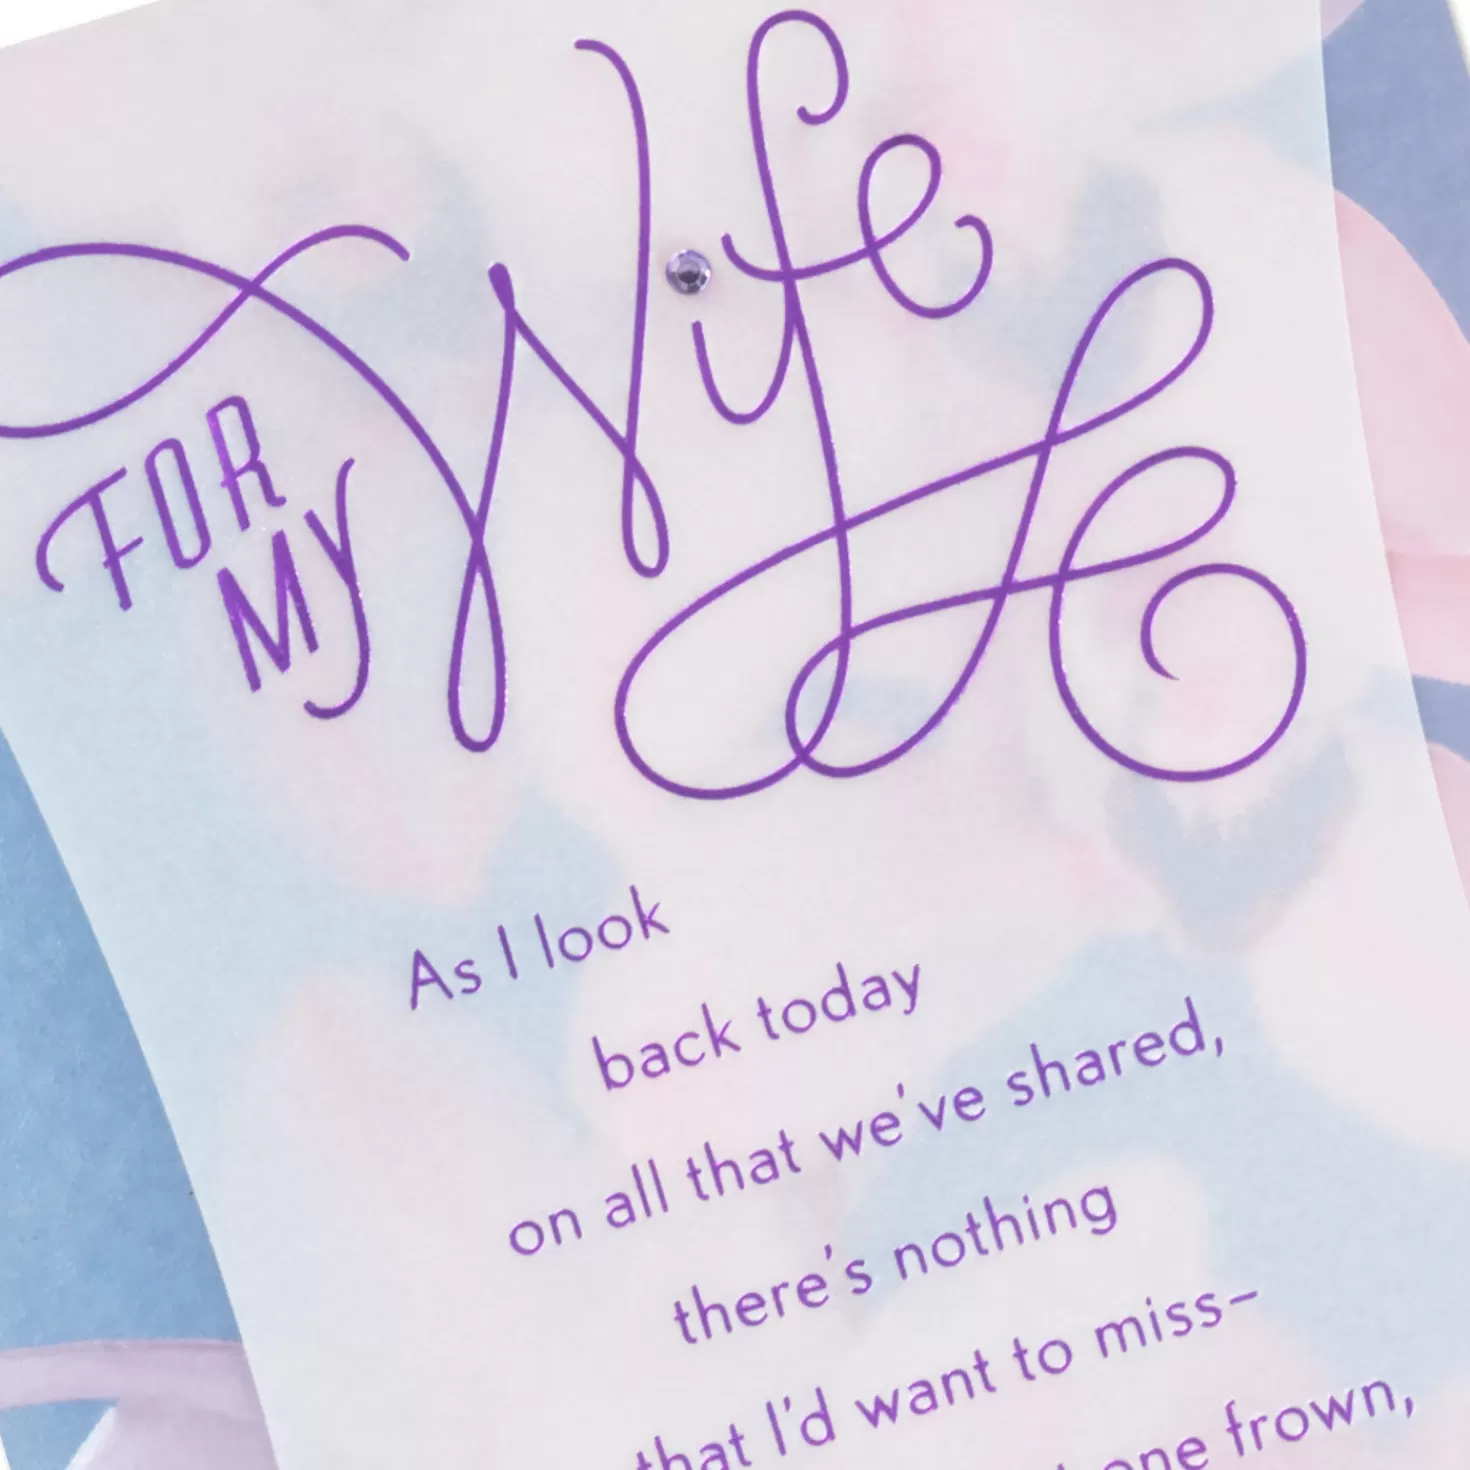 FOR
MY
Wife
As I look
back today
on all that we've shared,
there's nothing
that I'd want to miss–
one frown,